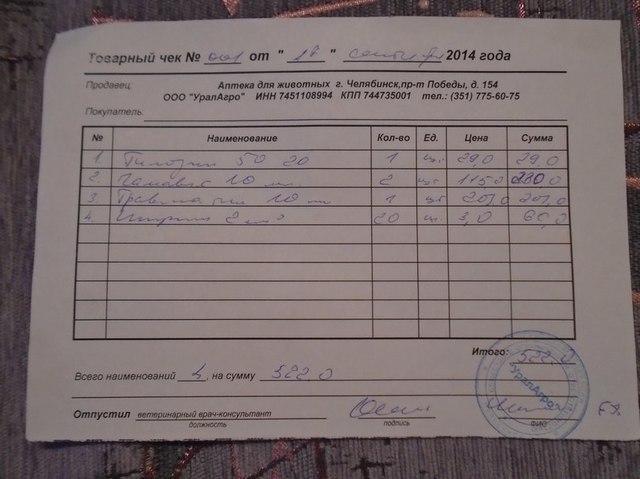 Товарный чек № 001 от " " сентября 2014 года
Продавец: Аптека для животных г. Челябинск,пр-т Победы, д. 154
ООО "УралАгро" ИНН 7451108994 КПП 744735001 тел.: (351) 775-60-75
Покупатель:
№ Наименование Кол-во Ед. Цена Сумма
1. 50 20 1 шт 29,0 29,0
2. Гамавит 10 мл 2 шт 115,0 230,0
3. Травматин 10 мл 1 шт 201,0 201,0
4. Шприц 2 20 шт 3,0
Итого: 522,0
Всего наименований 4, на сумму 522,0
"УралАгро"
Отпустил ветеринарный врач-консультант
должность подпись ФИО